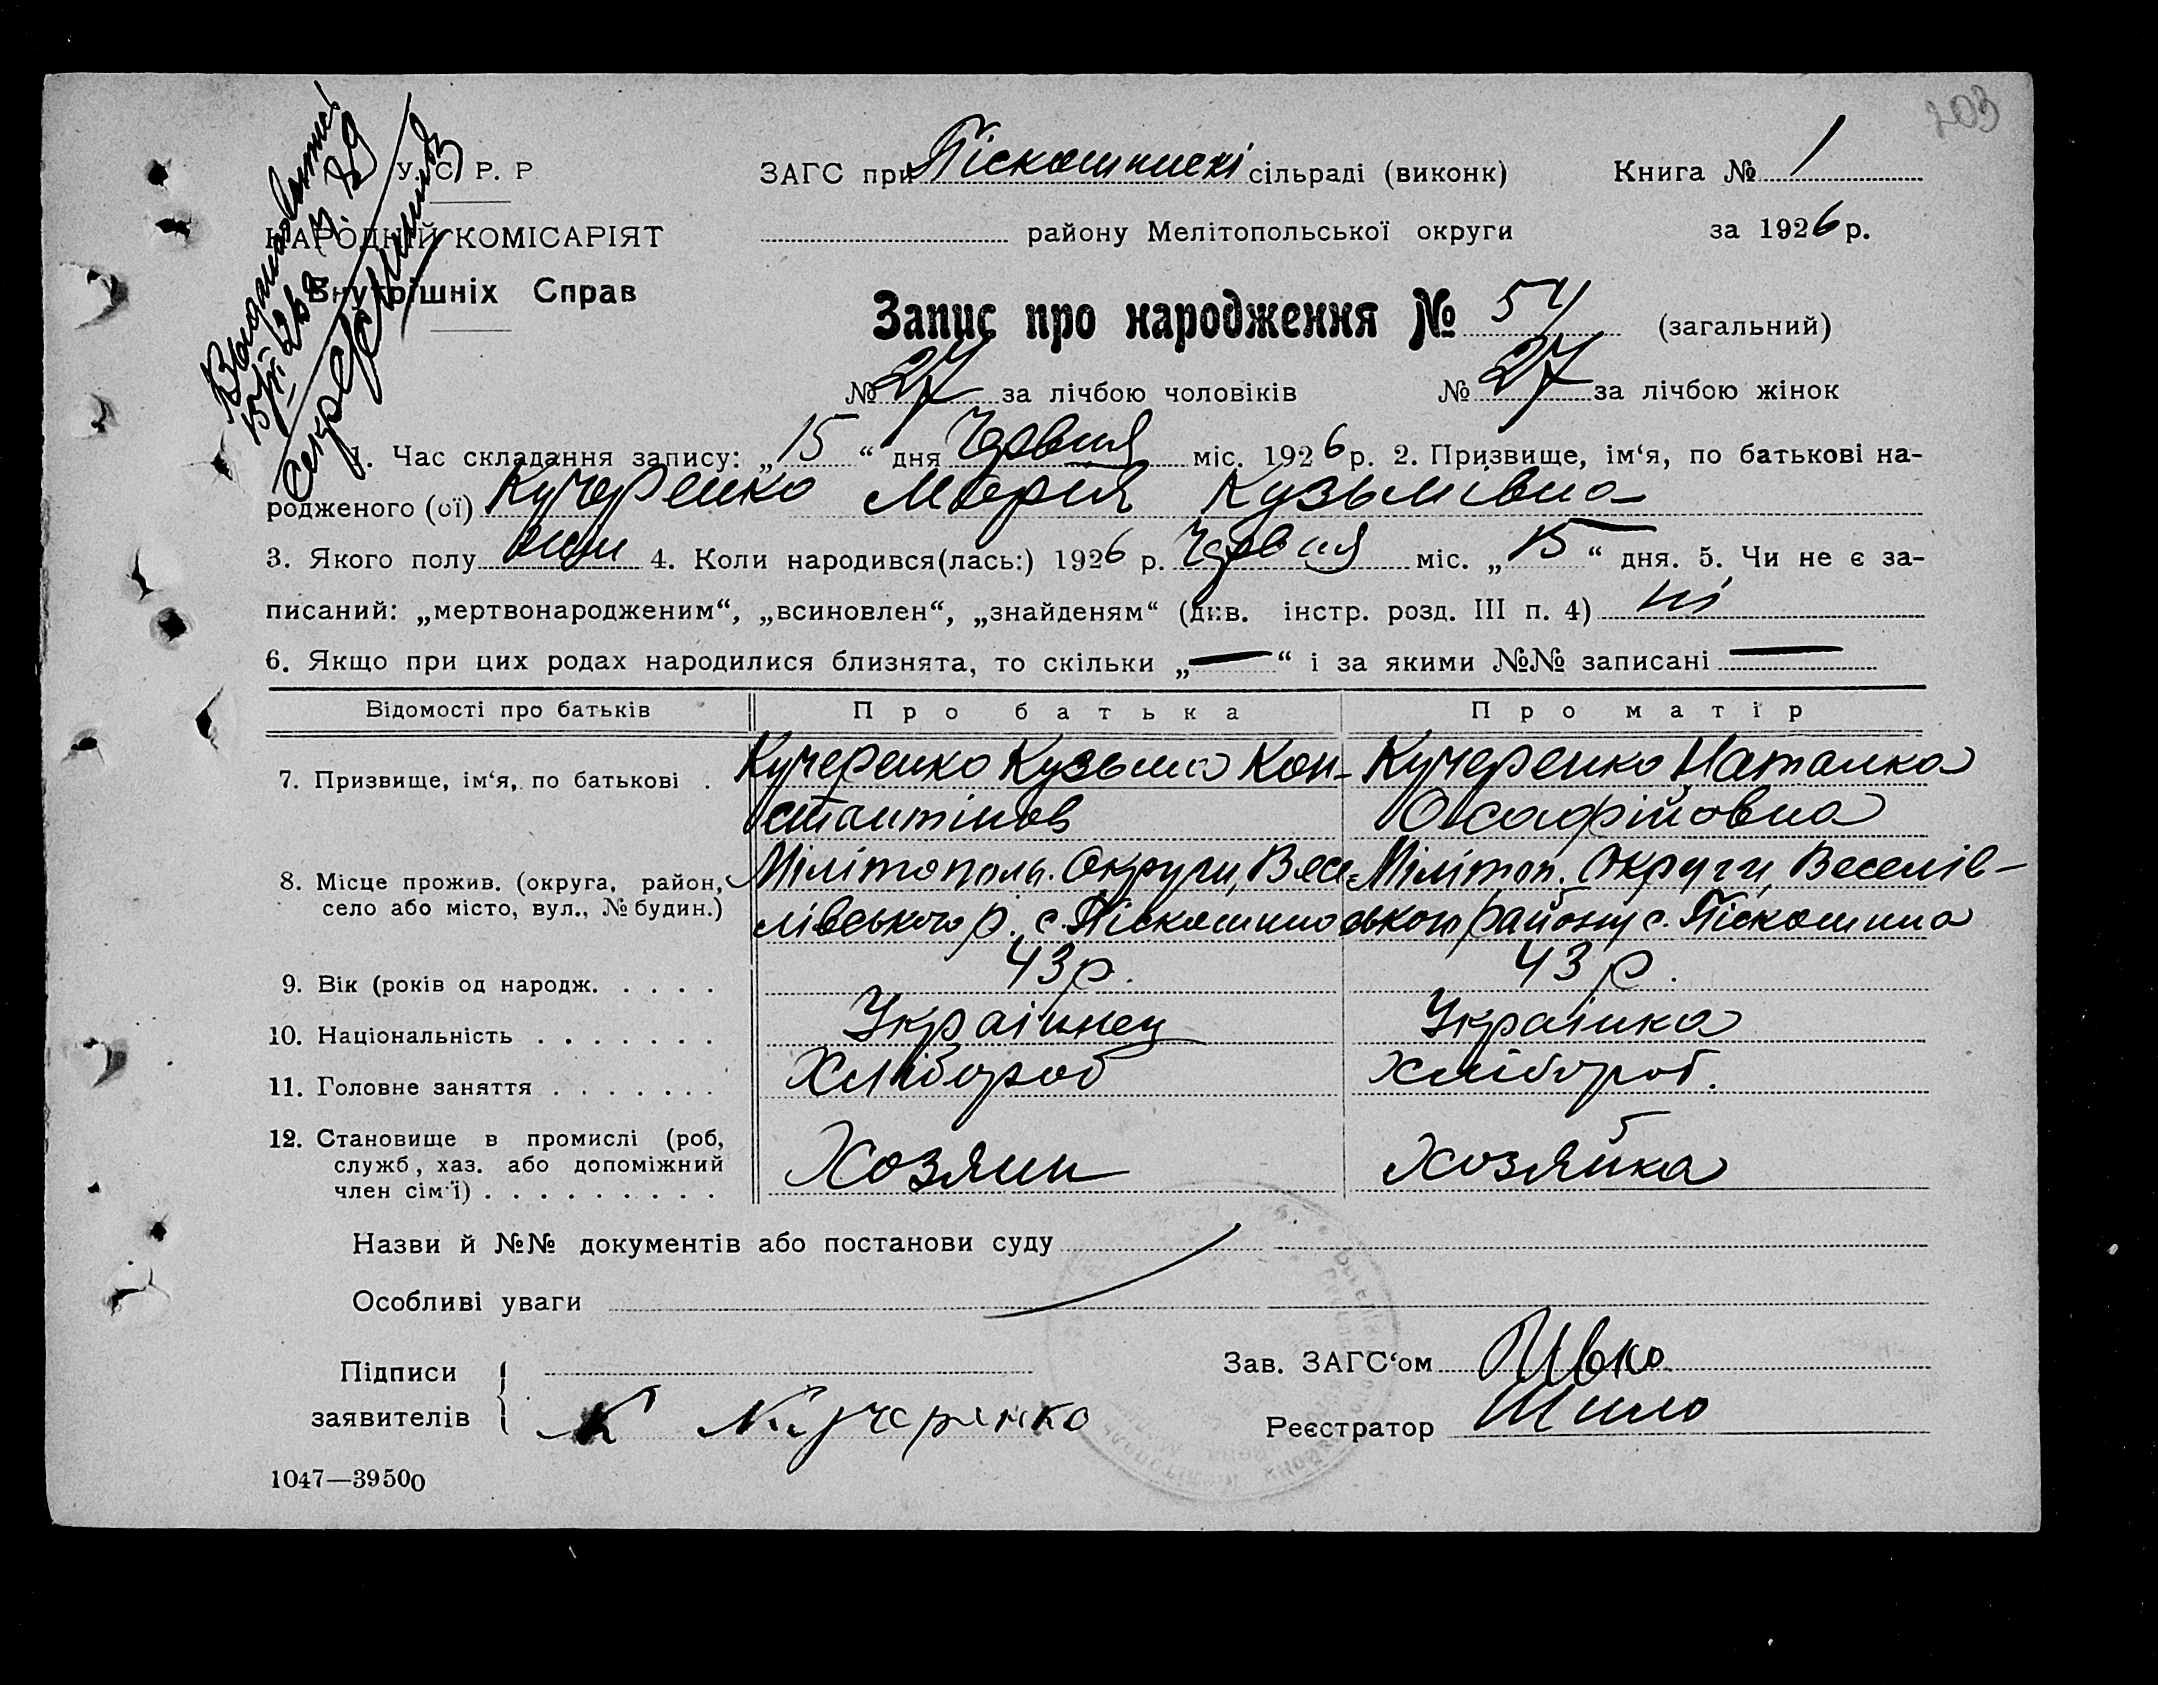 203
У. С. Р. Р
НАРОДНІЙ КОМІСАРІЯТ
Внутрішніх Справ
ЗАГС при Піскошинскі сільраді (виконк) Книга № 1
району Мелітопольської округи за 1926 р.
Запис про народження № 54 (загальний)
№ 27 за лічбою чоловіків № 27 за лічбою жінок
1. Час складання запису: „15“ дня Червня міс. 1926 р. 2. Призвище, ім‘я, по батькові на-
родженого (ої) Кучеренко Марія Кузьмівна
3. Якого полу жін 4. Коли народився(лась:) 1926 р. Червня міс. „15“ дня. 5. Чи не є за-
писаний: „мертвонародженим“, „всиновлен“, „знайденям“ (див. інстр. розд. III п. 4) ні
6. Якщо при цих родах народилися близнята, то скільки „—“ і за якими №№ записані —
Відомості про батьків Про батька Про матір
7. Призвище, ім‘я, по батькові . Кучеренко Кузьма Кон- Кучеренко Наталка
стантінов Оксафійовна
8. Місце прожив. (округа, район, Мілітополь. Округи, Весе- Мілітоп. Округи, Веселів-
село або місто, вул., № будин.) лівського р. с. Піскошино ського району с. Піскошино
9. Вік (років од народж. . . . . 43 р. 43 р.
10. Національність . . . . . . . Українец Українка
11. Головне заняття . . . . . . . Хлібороб Хлібороб.
12. Становище в промислі (роб,
служб, хаз. або допоміжний Хозяин Хозяйка
член сім‘ї) . . . . . . . . . .
Назви й №№ документів або постанови суду
Особливі уваги
Підписи Зав. ЗАГС‘ом
заявителів К Кучеренко Реєстратор Шило
1047—39500